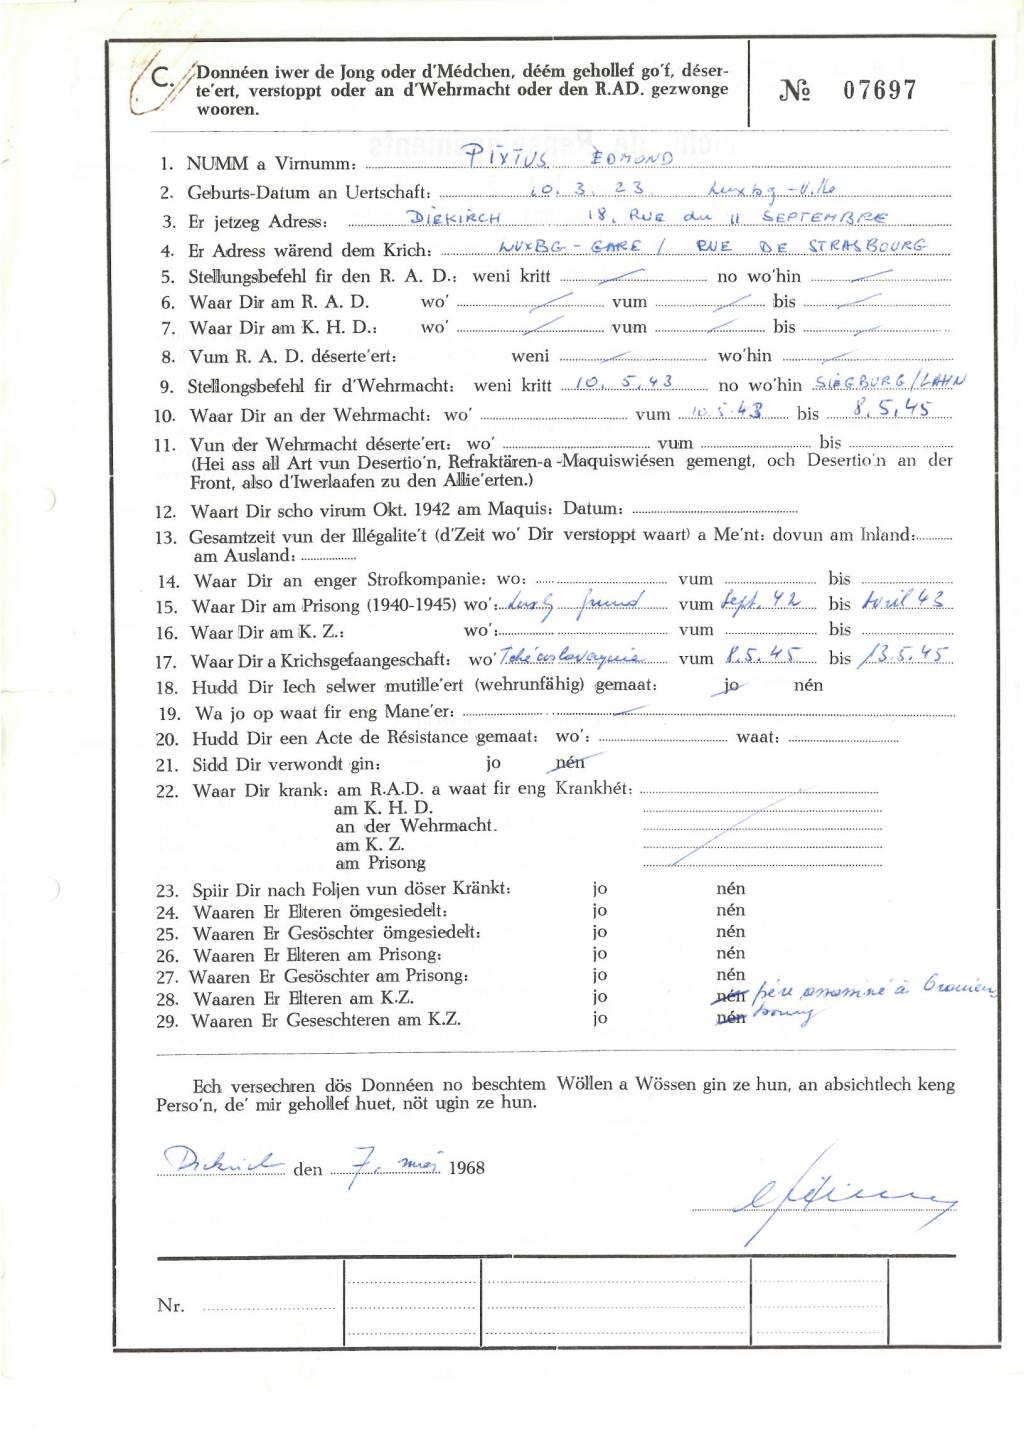 C. Donnéen iwer de Jong oder d'Médchen, déém gehollef go'f, déser-
te'ert, verstoppt oder an d'Wehrmacht oder den R.AD. gezwonge
wooren.
№ 07697
1. NUMM a Virnumm: PIXIUS EDMOND
2. Geburts-Datum an Uertschaft: 10. 3. 23 Luxbg-Ville
3. Er jetzeg Adress: DIEKIRCH 18, RUE du 11 SEPTEMBRE
4. Er Adress wärend dem Krich: LUXBG-GARE / RUE DE STRASBOURG
5. Stellungsbefehl fir den R. A. D.: weni kritt no wo'hin
6. Waar Dir am R. A. D. wo' vum bis
7. Waar Dir am K. H. D.: wo' vum bis
8. Vum R. A. D. déserte'ert: weni wo'hin
9. Stellongsbefehl fir d'Wehrmacht: weni kritt 10. 5. 43 no wo'hin SIEGBURG/LAHN
10. Waar Dir an der Wehrmacht: wo' vum 10.5.43 bis 8.5.45
11. Vun der Wehrmacht déserte'ert: wo' vum bis
(Hei ass all Art vun Desertio'n, Refraktären-a-Maquiswiésen gemengt, och Desertio'n an der
Front, also d'Iwerlaafen zu den Allie'erten.)
12. Waart Dir scho virum Okt. 1942 am Maquis: Datum:
13. Gesamtzeit vun der Illégalite't (d'Zeit wo' Dir verstoppt waart) a Me'nt: dovun am Inland:
am Ausland:
14. Waar Dir an enger Strofkompanie: wo: vum bis
15. Waar Dir am Prison̈g (1940-1945) wo': Luxbg Grund vum Sept. 42 bis Avril 43
16. Waar Dir am K. Z.: wo': vum bis
17. Waar Dir a Krichsgefaangeschaft: wo' Tchécoslovaquie vum 8.5.45 bis 13.5.45
18. Hudd Dir Iech selwer mutille'ert (wehrunfähig) gemaat: jo nén
19. Wa jo op waat fir eng Mane'er:
20. Hudd Dir een Acte de Résistance gemaat: wo': waat:
21. Sidd Dir verwondt gin: jo nén
22. Waar Dir krank: am R.A.D. a waat fir eng Krankhét:
am K. H. D.
an der Wehrmacht.
am K. Z.
am Prisong
23. Spiir Dir nach Foljen vun döser Kränkt: jo nén
24. Waaren Er Elteren ömgesiedelt: jo nén
25. Waaren Er Gesöschter ömgesiedelt: jo nén
26. Waaren Er Elteren am Prisong: jo nén
27. Waaren Er Gesöschter am Prisong: jo nén
28. Waaren Er Elteren am K.Z. jo nén père assassiné à Oranien
29. Waaren Er Geseschteren am K.Z. jo nén bourg
Ech versechren dös Donnéen no beschtem Wöllen a Wössen gin ze hun, an absichtlech keng
Perso'n, de' mir gehollef huet, nöt ugin ze hun.
Diekirch den 7. mai 1968
Nr.